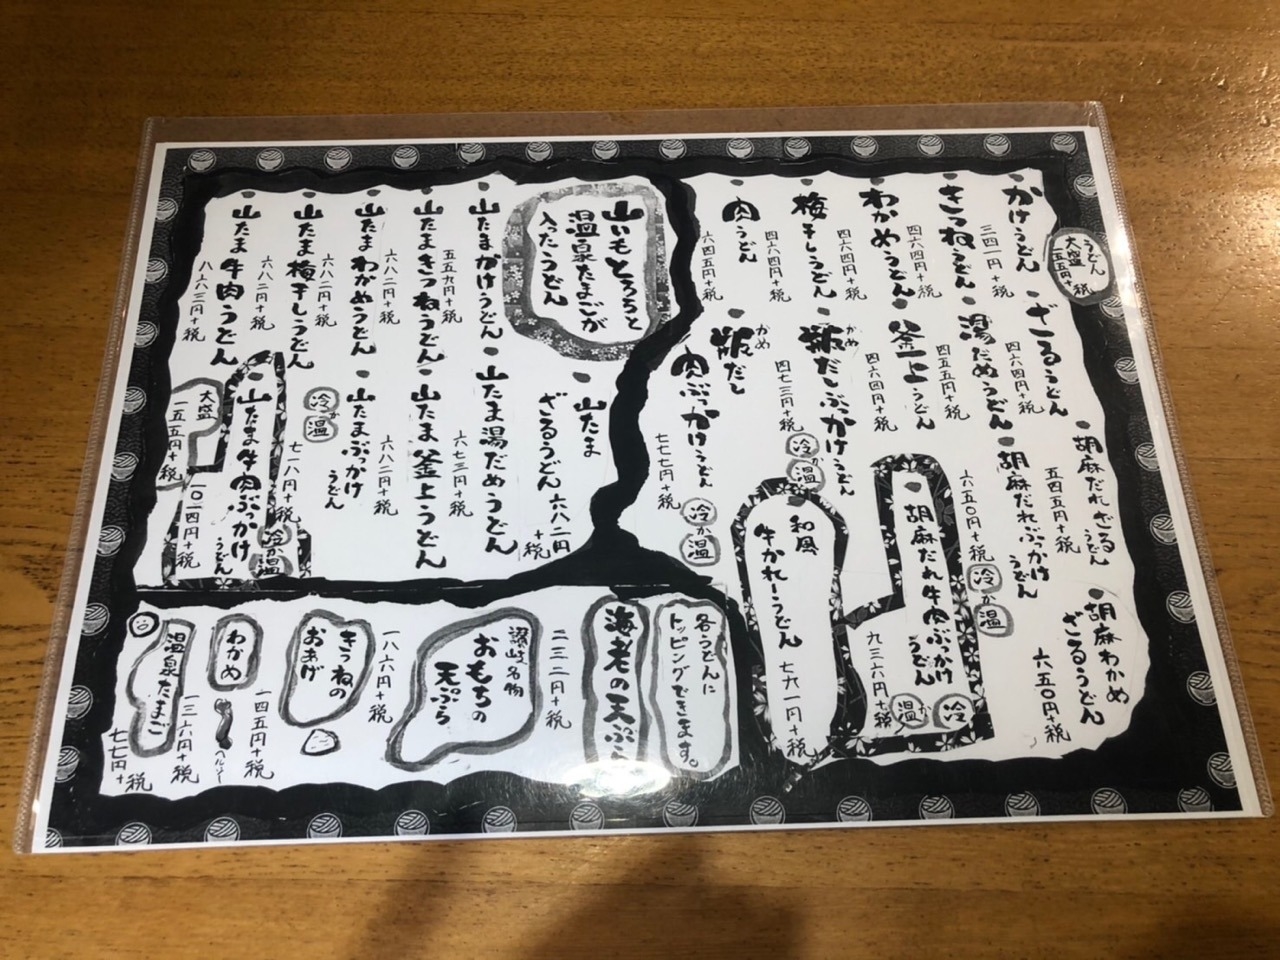 うどん
大盛
一五五円+税
かけうどん
三四一円+税
ざるうどん
四六四円+税
胡麻だれざるうどん
五四五円+税
胡麻わかめざるうどん
六五〇円+税
きつねうどん
四六四円+税
湯だめうどん
四五五円+税
胡麻だれぶっかけうどん
六五〇円+税
冷か温
わかめうどん
四六四円+税
釜上うどん
四六四円+税
胡麻だれ牛肉ぶっかけうどん
九三六円+税
冷か温
梅干しうどん
四六四円+税
瓶だしぶっかけうどん
かめ
四七三円+税
冷か温
和風
牛かれーうどん
七九一円+税
肉うどん
六四五円+税
瓶だし
かめ
肉ぶっかけうどん
七七七円+税
冷か温
山いもとろろと
温泉たまごが
入ったうどん
山たま
ざるうどん
六八二円+税
山たまかけうどん
五五九円+税
山たま湯だめうどん
六七三円+税
山たまきつねうどん
六八二円+税
山たま釜上うどん
六八二円+税
山たまわかめうどん
六八二円+税
山たまぶっかけうどん
七一八円+税
冷か温
山たま梅干しうどん
六八二円+税
山たま牛肉ぶっかけうどん
冷か温
一〇一四円+税
山たま牛肉うどん
八八三円+税
大盛
一五五円+税
各うどんに
トッピングできます。
海老の天ぷら
二三二円+税
讃岐名物
おもちの
天ぷら
一八六円+税
きつねの
おあげ
一四五円+税
わかめ
ヘルシー
一三六円+税
温泉たまご
七七円+税